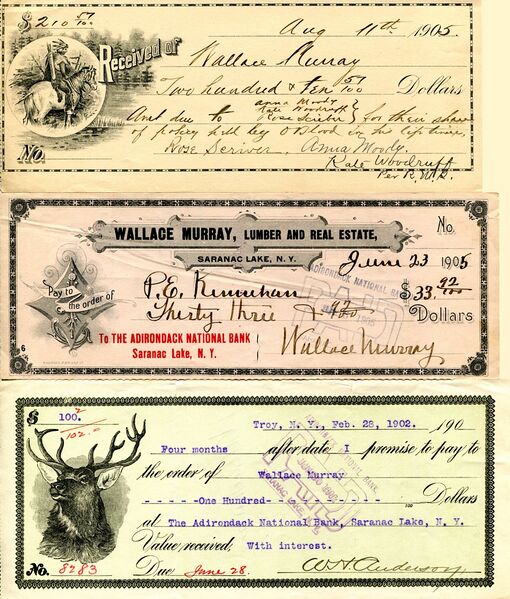 $ 210 57/100
Aug 11th 1905
Received of Wallace Murray
Two hundred & ten 57/100 Dollars
Anna Moody
Kate Woodruff
Amt due to Rose Scriber } for their share
of policy held by
in his life time,
Rose Scriver. Anna Moody.
No.
Kate Woodruff
Per R. W. S.
WALLACE MURRAY, LUMBER AND REAL ESTATE,
No.
SARANAC LAKE, N. Y.
June 23 1905
Pay to the order of
P.E. $ 33.92/100
Thirty three & 92/100 Dollars
To THE ADIRONDACK NATIONAL BANK
Saranac Lake, N. Y.
Wallace Murray
ADIRONDACK NATIONAL BANK
PAID
6
$ 100.
102.
Troy, N. Y., Feb. 28, 1902. 190
Four months after date I promise to pay to
the order of Wallace Murray
- - - - -One Hundred- - - - - - - - - - - 100 Dollars
at The Adirondack National Bank, Saranac Lake, N. Y.
Value received, With interest.
No. 8283 Due June 28. W H Anderson
PAID
SARANAC LAKE, N.Y.